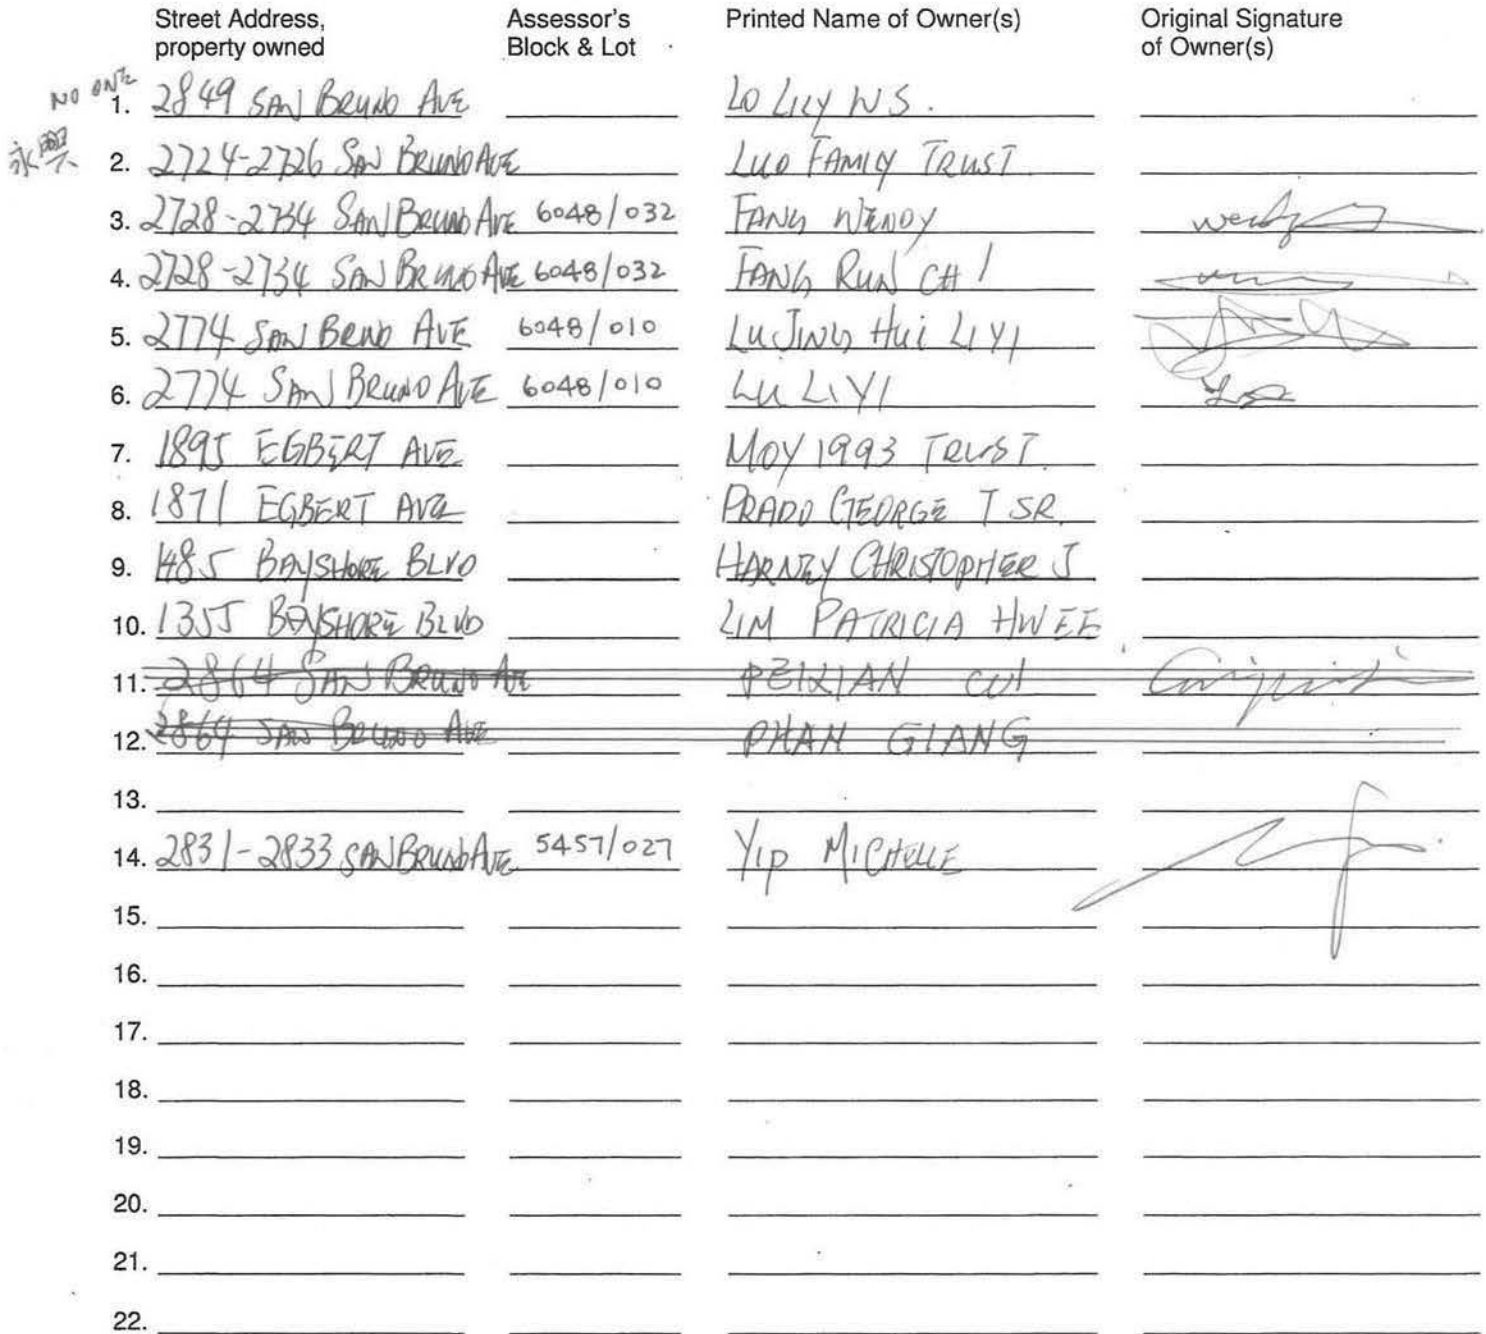 Street Address, property owned Assessor's Block & Lot Printed Name of Owner(s) Original Signature of Owner(s)
NO ONE
1. 2849 SAN BRUNO AVE LO LILY W S.
永興
2. 2724-2726 SAN BRUNO AVE LUO FAMILY TRUST
3. 2728-2734 SAN BRUNO AVE 6048/032 FANG WENDY
4. 2728-2734 SAN BRUNO AVE 6048/032 FANG RUN CHI
5. 2774 SAN BRUNO AVE 6048/010 LU JING HUI LIYI
6. 2774 SAN BRUNO AVE 6048/010 LU LIYI
7. 1895 EGBERT AVE MOY 1993 TRUST.
8. 1871 EGBERT AVE PRADO GEORGE T SR.
9. 1485 BAYSHORE BLVD HARNEY CHRISTOPHER J
10. 1355 BAYSHORE BLVD LIM PATRICIA HWEE
11. 2864 SAN BRUNO AVE PEIXIAN CUI
12. 2864 SAN BRUNO AVE PHAN GIANG
13.
14. 2831-2833 SAN BRUNO AVE 5457/027 YIP MICHELLE
15.
16.
17.
18.
19.
20.
21.
22.